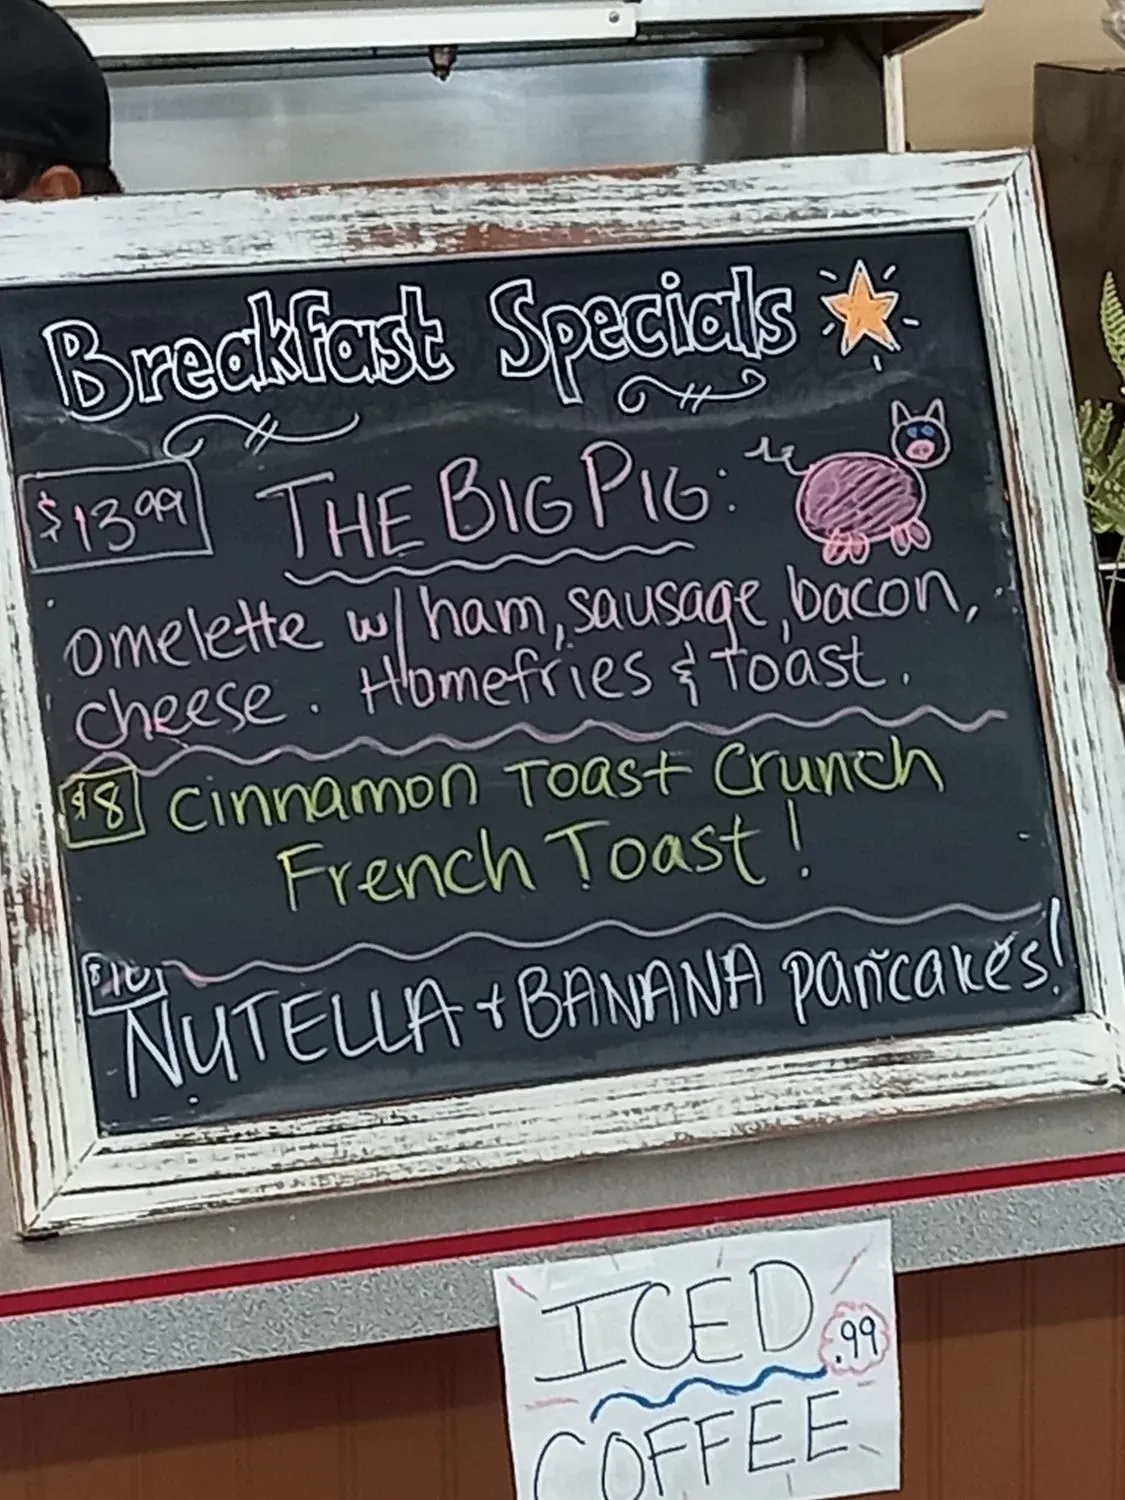 Breakfast Specials
$13.99 THE BIG PIG:
omelette w/ ham, sausage, bacon,
cheese. Homefries & toast.
$8 Cinnamon Toast Crunch
French Toast!
$10
NUTELLA + BANANA pancakes!
ICED .99
COFFEE